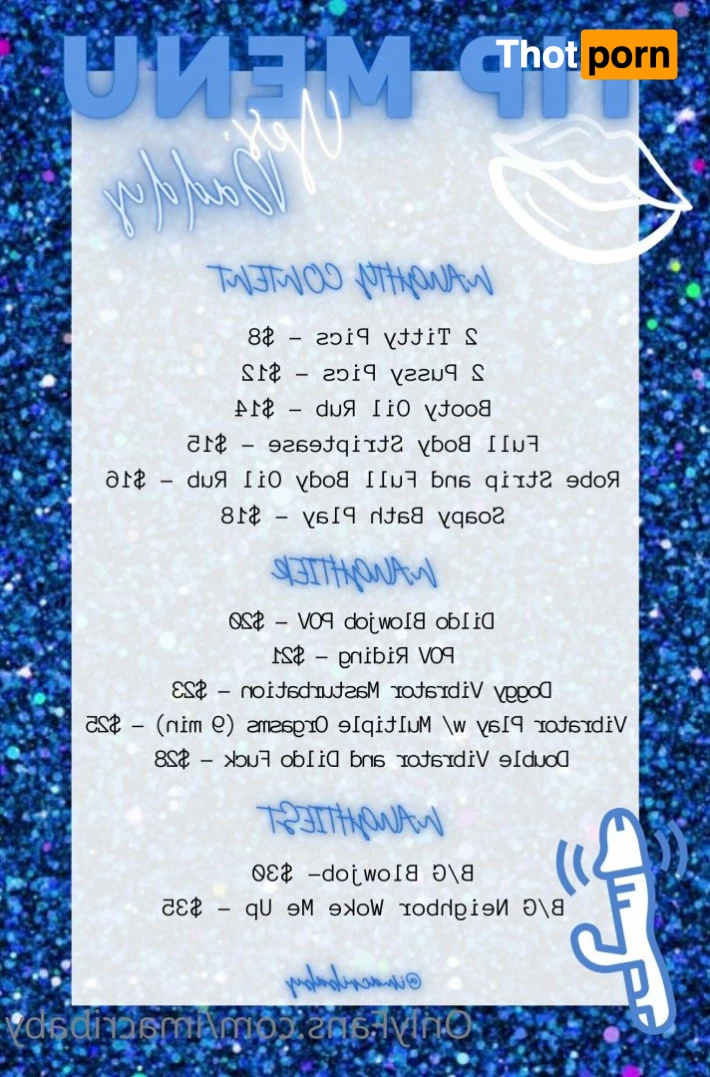 Thot porn
TIP MENU
Yes,
Daddy
NAUGHTY CONTENT
2 Titty Pics – $8
2 Pussy Pics – $12
Booty Oil Rub – $14
Full Body Striptease – $15
Robe Strip and Full Body Oil Rub – $16
Soapy Bath Play – $18
NAUGHTIER
Dildo Blowjob POV – $20
POV Riding – $21
Doggy Vibrator Masturbation – $23
Vibrator Play w/ Multiple Orgasms (9 min) – $25
Double Vibrator and Dildo Fuck – $28
NAUGHTIEST
B/G Blowjob– $30
B/G Neighbor Woke Me Up – $35
@imacribaby
OnlyFans.com/imacribaby